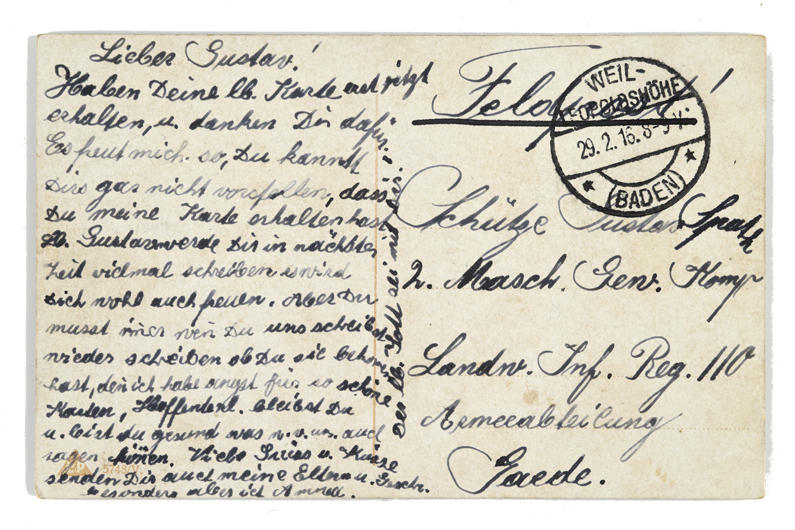 Lieber Gustav!
Haben Deine lb. Karte erst jetzt
erhalten, u. danken Dir dafür.
Es freut mich so, Du kannst
Dirs gar nicht vorstellen, dass
Du meine Karte erhalten hast
lb. Gustav werde Dir in nächster
Zeit vielmal schreiben es wird
Dich wohl auch freuen. Aber Du
musst wen Du uns schreibst
wieder schreiben ob Du sie bekomen
hast, den ich habe angst für so schöne
Karten, Hoffentl. bleibst Du
u. bist du gesund was n. v. uns auch
sagen könen. Viele Grüss u. Küsse
senden Dir auch meine Eltern u. Geschr.
besonders aber ich Anna.
Der lb. Gott sei mit Dir.
Feldpost!
WEIL-
LEOPOLDSHÖHE
29.2.16. 8-9 V.
(BADEN)
Schütze Gustav Späth
2. Masch. Gew. Komp
Landw. Inf. Reg. 110
Armeeabteilung
Gaede.